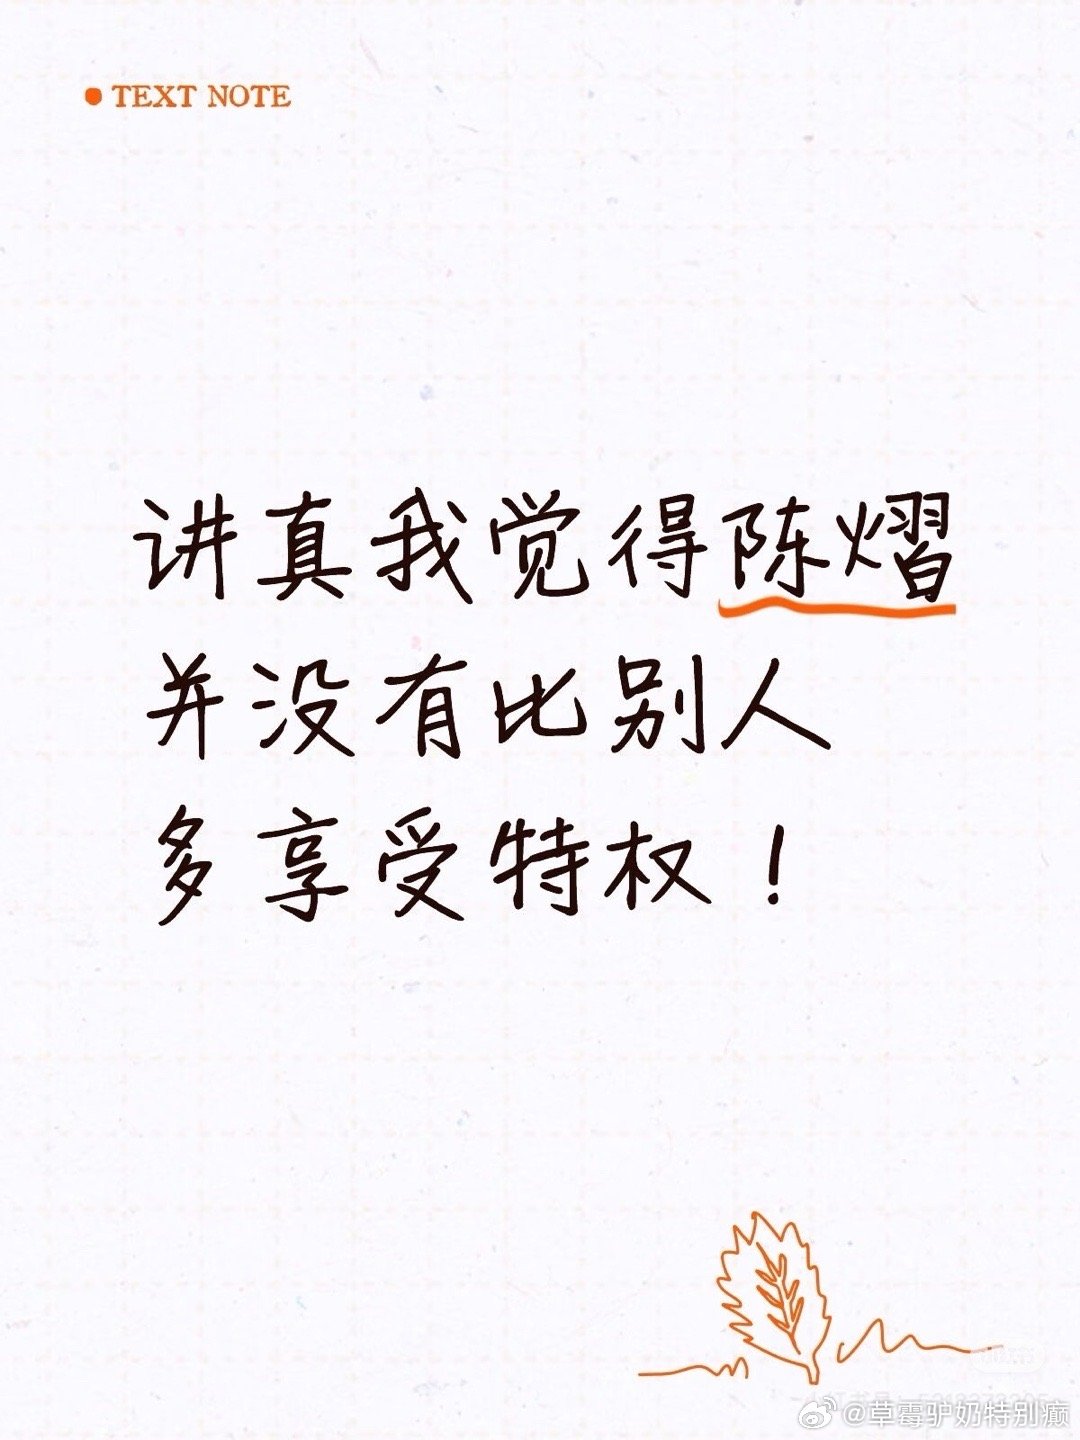 TEXT NOTE
讲真我觉得陈熠
并没有比别人
多享受特权！
@草莓驴奶特别癫